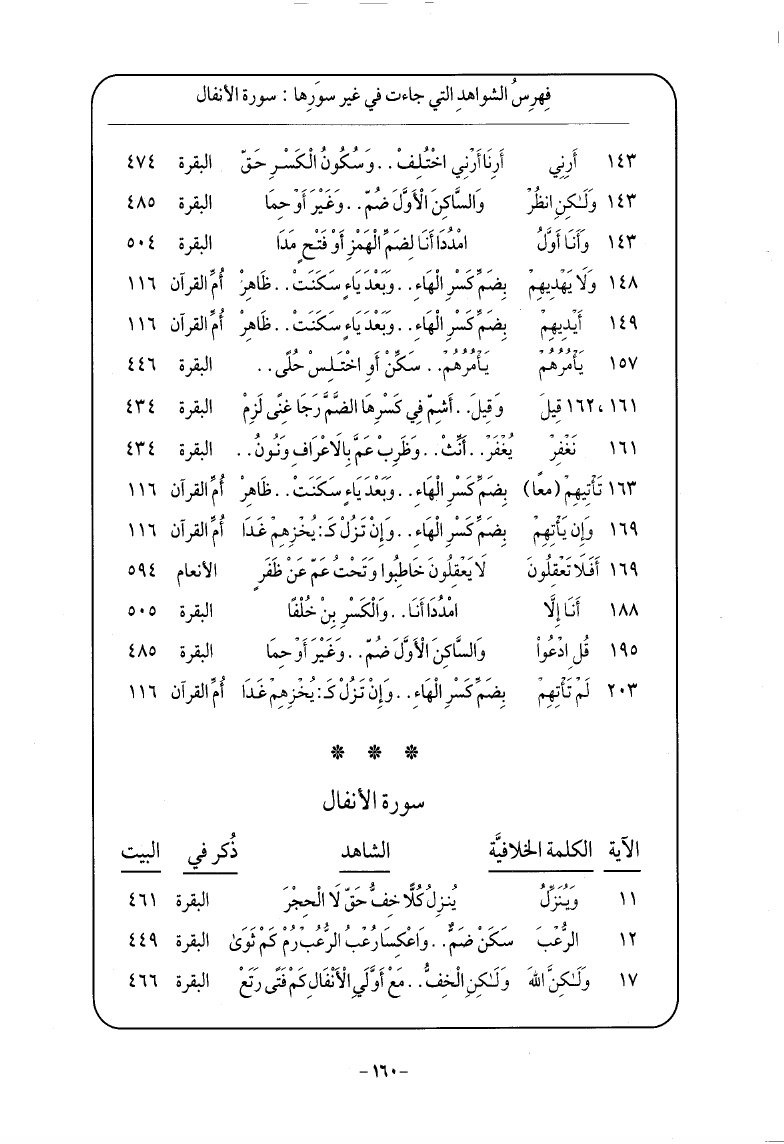 فِهرِسُ الشواهدِ التي جاءت في غير سوَرِها : سورة الأنفال
١٤٣ أَرِنِي أَرِنَا أَرْنِي اخْتُلِفْ . . وَسُكُونُ الْكَسْرِ حَقّْ البقرة ٤٧٤
١٤٣ وَلَـٰكِنِ انظُرْ وَالسَّاكِنَ الْأَوَّلَ ضُمّْ . . وَغَيْرَ أَوْ حِمًا البقرة ٤٨٥
١٤٣ وَأَنَا أَوَّلُ امْدُدَا أَنَا لِضَمِّ الْهَمْزِ أَوْ فَتْحٍ مَدَا البقرة ٥٠٤
١٤٨ وَلَا يَهْدِيهِمْ بِضَمِّ كَسْرِ الْهَاءِ . . وَبَعْدَ يَاءٍ سَكَنَتْ . . ظَاهِرْ أُمِّ القرآن ١١٦
١٤٩ أَيْدِيهِمْ بِضَمِّ كَسْرِ الْهَاءِ . . وَبَعْدَ يَاءٍ سَكَنَتْ . . ظَاهِرْ أُمِّ القرآن ١١٦
١٥٧ يَأْمُرُهُم يَأْمُرُهُمْ . . سَكِّنْ أَوِ اخْتَلِسْ حُلًى . . البقرة ٤٤٦
١٦١ ، ١٦٢ قِيلَ وَقِيلَ . . أَشِمّْ فِي كَسْرِهَا الضَّمَّ رَجَا غِنًى لَزِمْ البقرة ٤٣٤
١٦١ نَغْفِرْ يُغْفَرْ . . أَنِّثْ . . وَظَرِبْ عَمَّ بِالَاعْرَافِ وَنُونُ . . البقرة ٤٣٤
١٦٣ تَأْتِيهِمْ (معًا) بِضَمِّ كَسْرِ الْهَاءِ . . وَبَعْدَ يَاءٍ سَكَنَتْ . . ظَاهِرْ أُمِّ القرآن ١١٦
١٦٩ وَإِن يَأْتِهِمْ بِضَمِّ كَسْرِ الْهَاءِ . . وَإِنْ تَزُلْ كَـ: يُخْزِهِمْ غَدَا أُمِّ القرآن ١١٦
١٦٩ أَفَلَا تَعْقِلُونَ لَا يَعْقِلُونَ خَاطَبُوا وَتَحْتُ عَمّْ عَنْ ظَفَرٍ الأنعام ٥٩٤
١٨٨ أَنَا إِلَّا امْدُدَا أَنَا . . وَالْكَسْرِ بِنْ خُلْفًا البقرة ٥٠٥
١٩٥ قُلِ ادْعُواْ وَالسَّاكِنَ الْأَوَّلَ ضُمّْ . . وَغَيْرَ أَوْ حِمًا البقرة ٤٨٥
٢٠٣ لَمْ تَأْتِهِمْ بِضَمِّ كَسْرِ الْهَاءِ . . وَإِنْ تَزُلْ كَـ: يُخْزِهِمْ غَدَا أُمِّ القرآن ١١٦
سورة الأنفال
الآية الكلمة الخلافيَّة الشاهد ذُكر في البيت
١١ وَيُنَزِّلُ يُنزِلُ كُلًّا خِفُّ حَقّْ لَا الْحِجْرَ البقرة ٤٦١
١٢ الرُّعْبَ سَكَنْ ضَمٌّ . . وَاعْكِسَا رُعْبُ الرُّعْبُ رُمْ كَمْ ثَوَىٰ البقرة ٤٤٩
١٧ وَلَـٰكِنَّ اللَّهَ وَلَـٰكِنِ الْخِفُّ . . مَعْ أَوَّلَيِ الْأَنْفَالِ كَمْ فَتًى رَتَعْ البقرة ٤٦٦
-١٦٠-